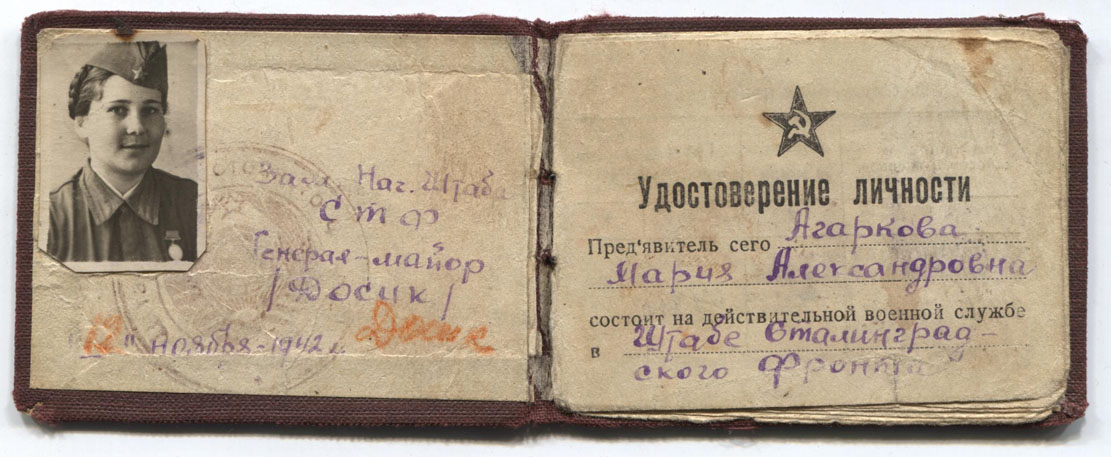 Зам. Нач. Штаба
СТФ
Генерал-майор
/Досик/
Досик
"12" Ноября-1942 г.
Удостоверение личности
Пред'явитель сего Агаркова
Мария Александровна
состоит на действительной военной службе
в Штабе Сталинград-
ского фронта